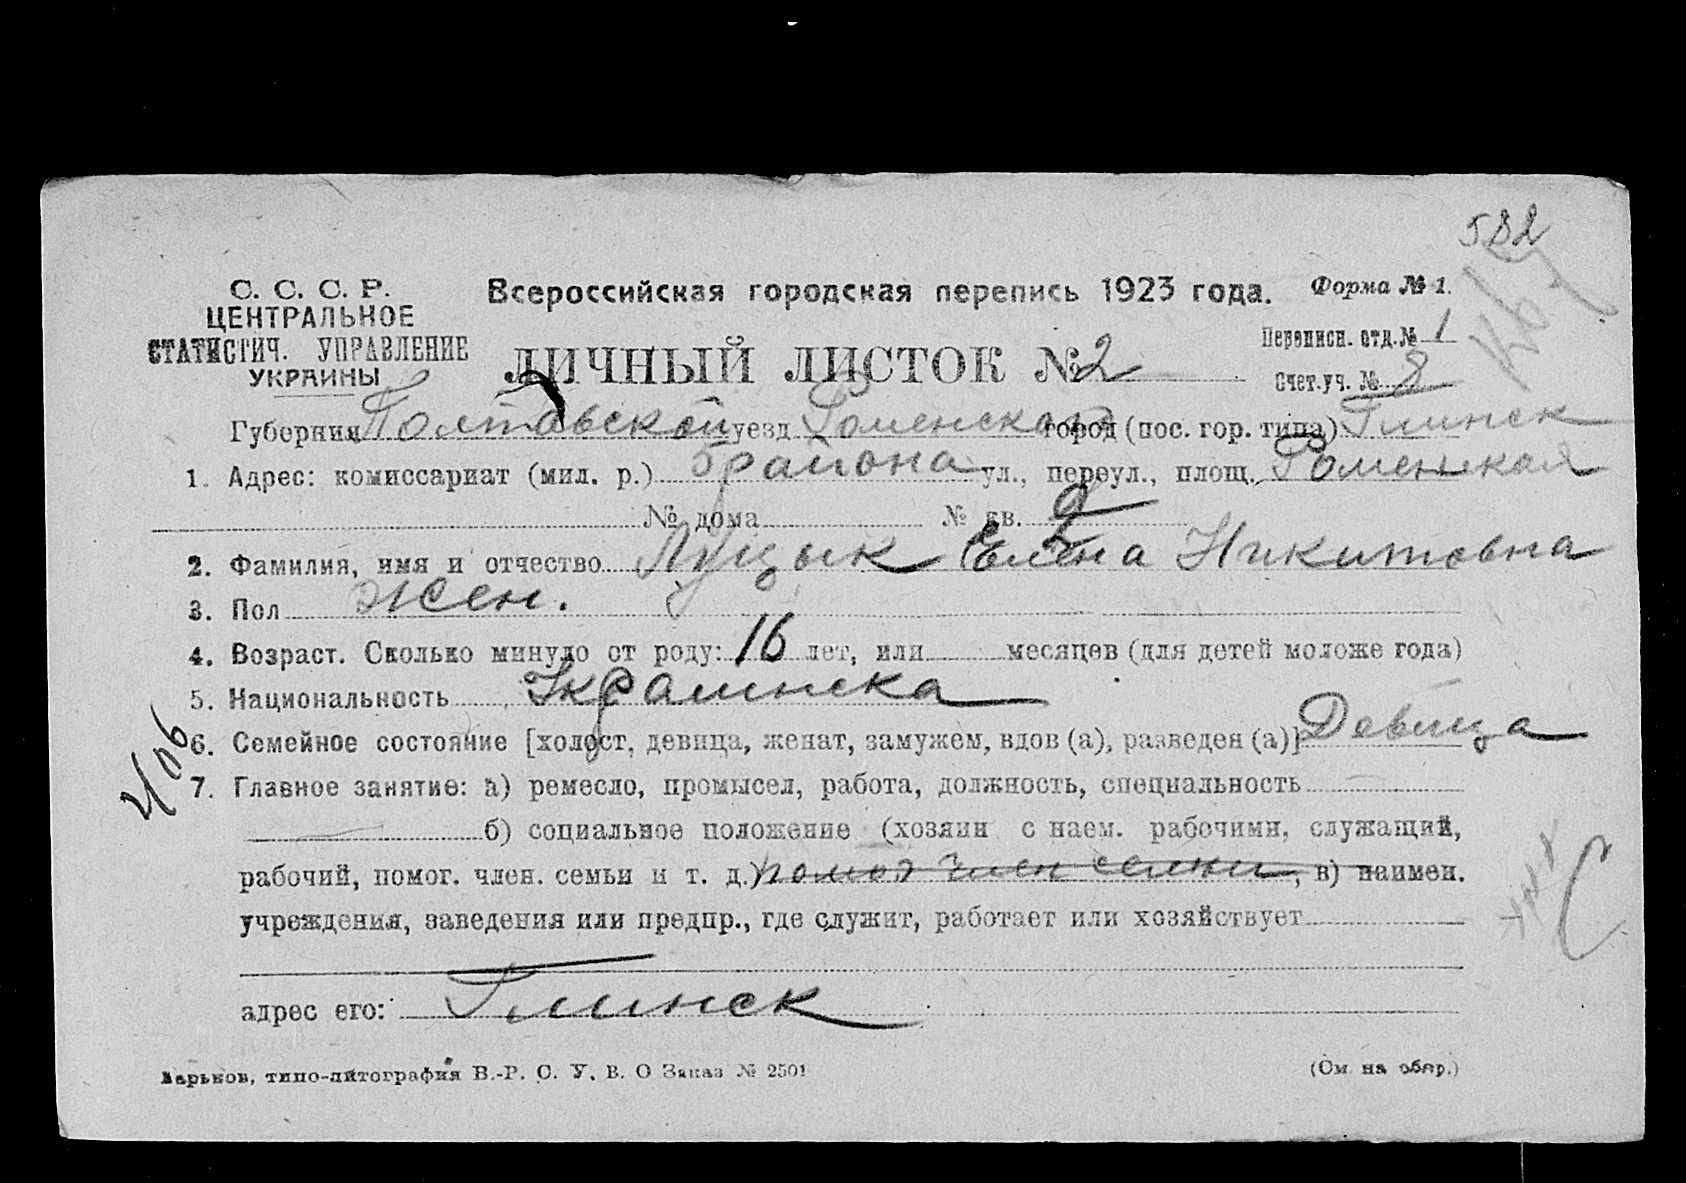 532
С. С. С. Р.
ЦЕНТРАЛЬНОЕ
СТАТИСТИЧ. УПРАВЛЕНИЕ
УКРАИНЫ
Всероссийская городская перепись 1923 года. Форма № 1.
ЛИЧНЫЙ ЛИСТОК № 2
Переписн. отд. № 1
Счет. уч. № 8
Губерния Полтавской уезд Роменского город (пос. гор. типа) Глинск
1. Адрес: комиссариат (мил. р.) района ул., переул., площ. Роменская
№ дома № кв.
2. Фамилия, имя и отчество Луцык Елена Никитовна
3. Пол жен.
4. Возраст. Сколько минуло от роду: 16 лет, или месяцев (для детей моложе года)
5. Национальность Украинска
6. Семейное состояние [холост, девица, женат, замужем, вдов (а), разведен (а)] Девица
7. Главное занятие: а) ремесло, промысел, работа, должность, специальность
б) социальное положение (хозяин с наем. рабочими, служащий,
рабочий, помог. член. семьи и т. д.) помог член семьи, в) наимен.
учреждения, заведения или предпр., где служит, работает или хозяйствует
адрес его: Глинск
Харьков, типо-литография В.-Р. С. У. В. О Заказ № 2501
(См. на обор.)